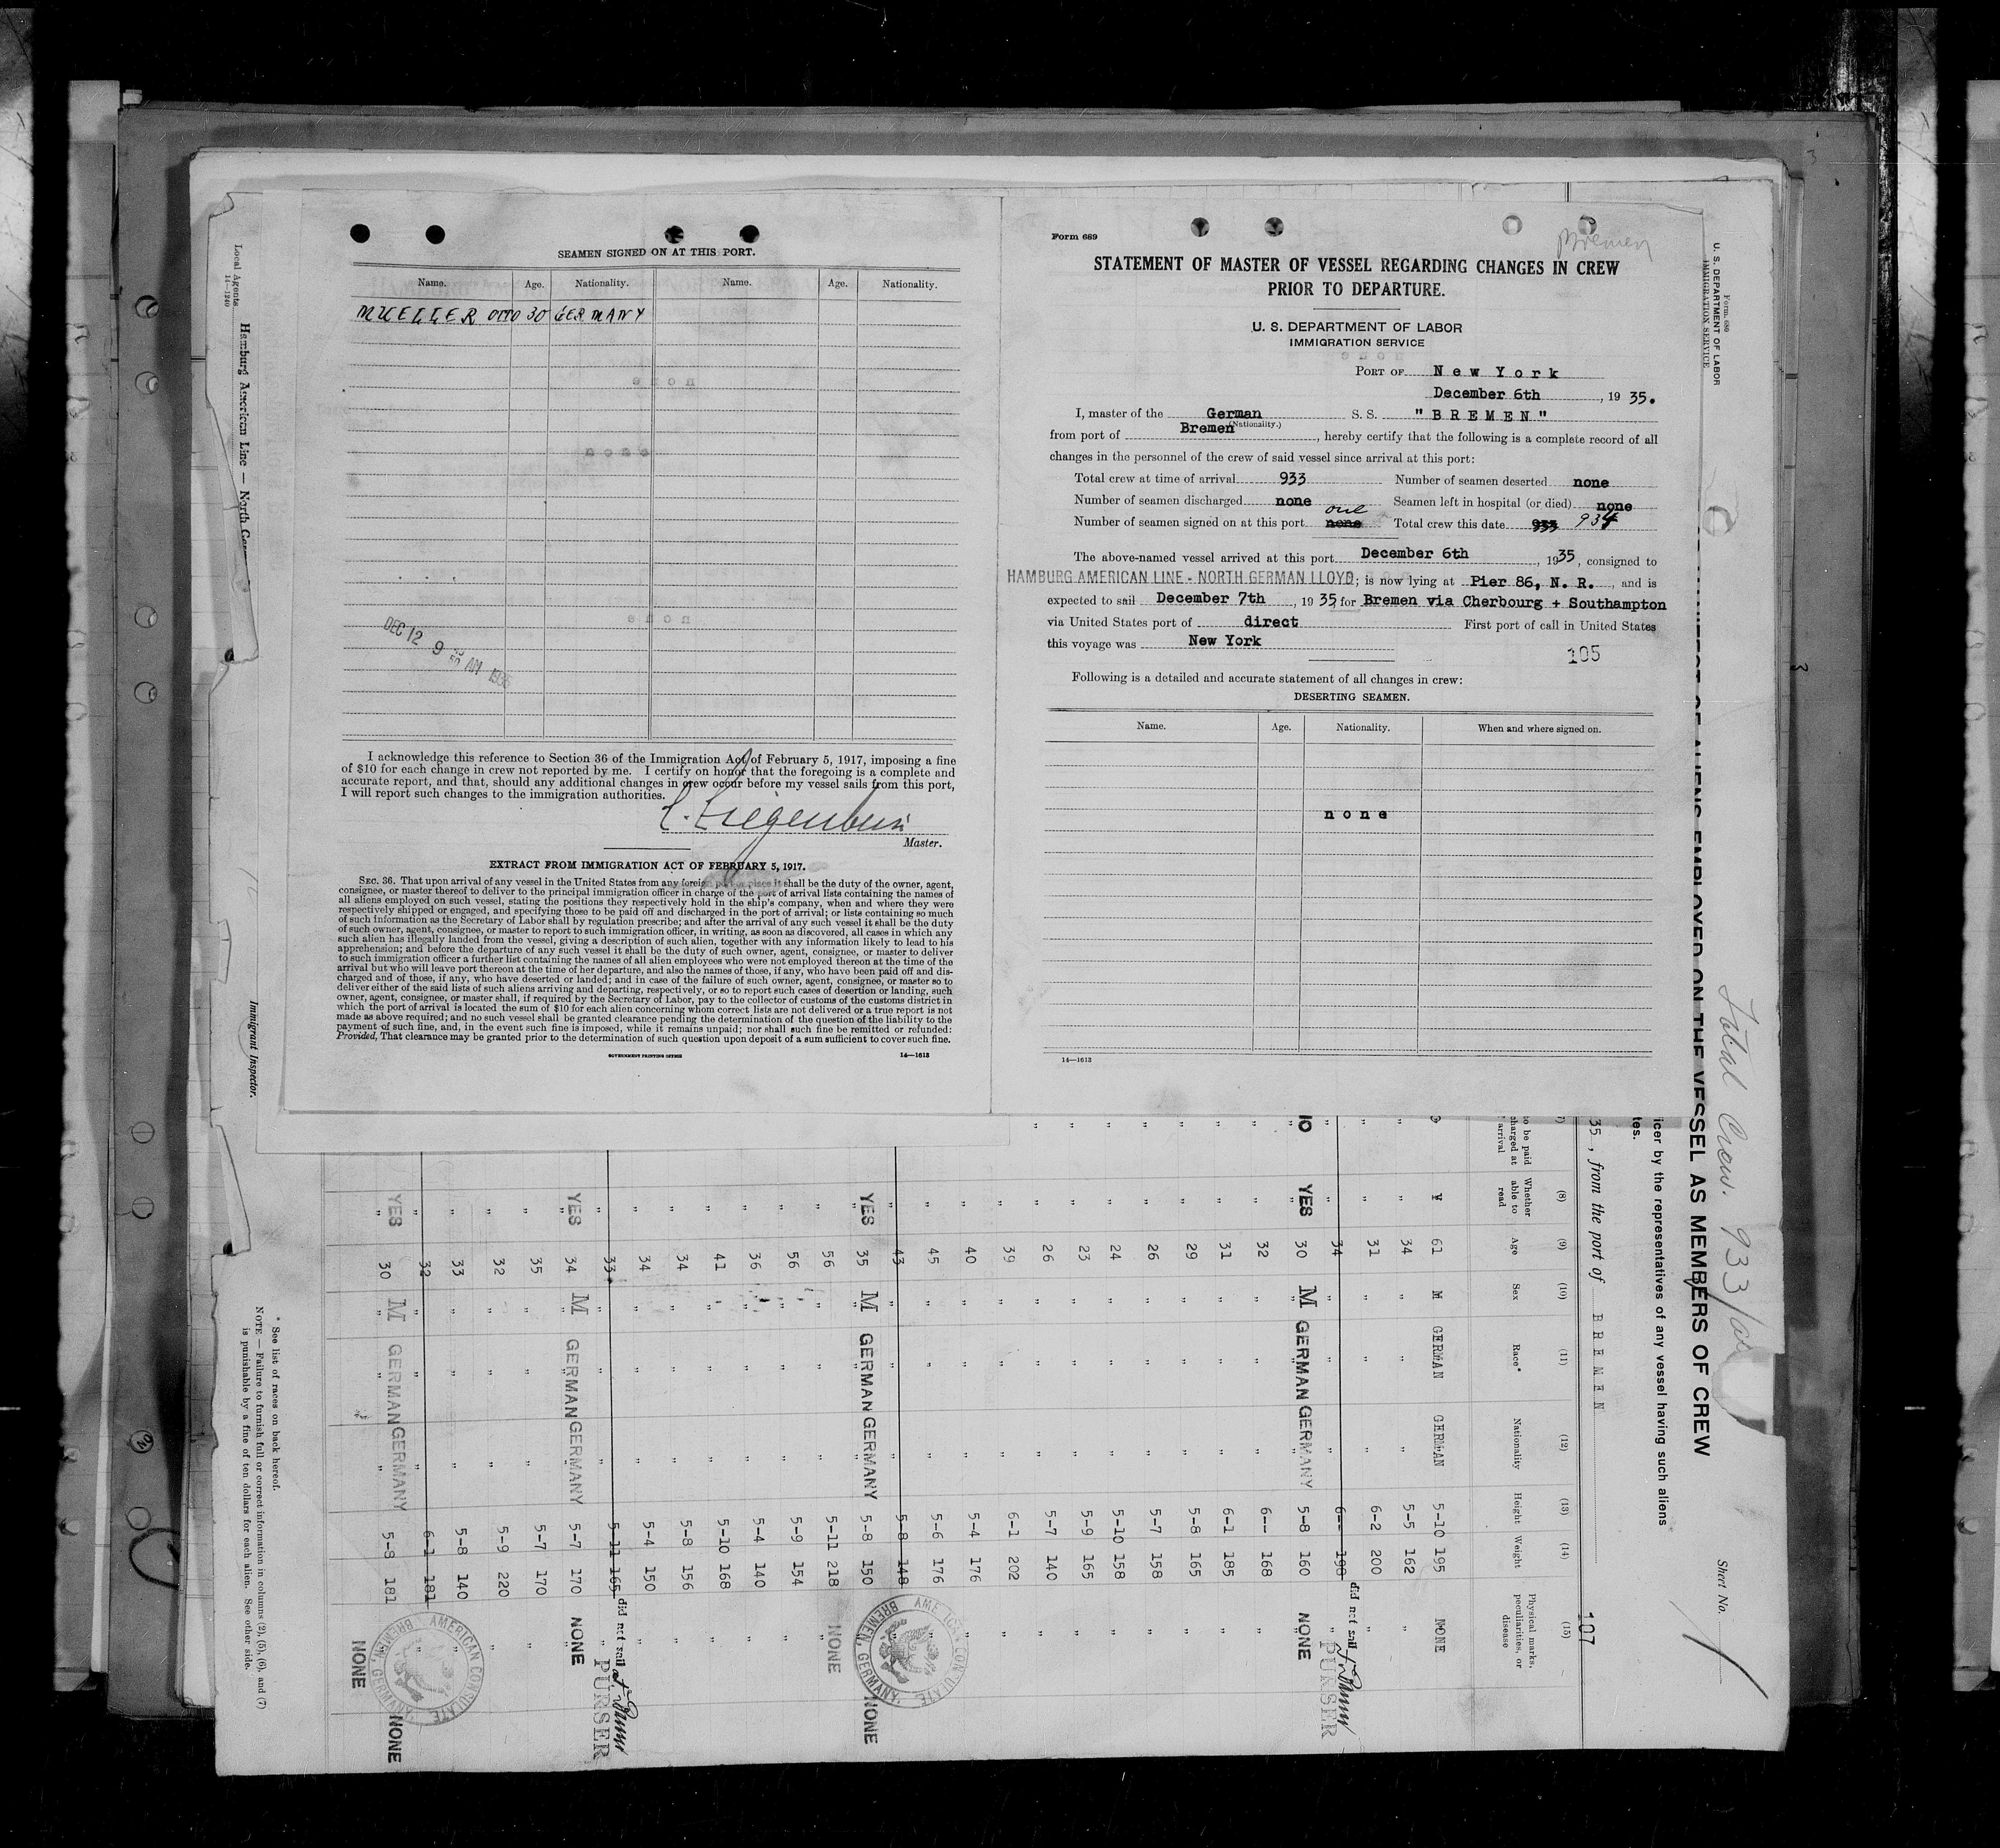 SEAMEN SIGNED ON AT THIS PORT.
Name. Age. Nationality. Name. Age. Nationality.
MUELLER OTTO 30 GERMANY
none
DEC 12 9 AM 1935
I acknowledge this reference to Section 36 of the Immigration Act of February 5, 1917, imposing a fine
of $10 for each change in crew not reported by me. I certify on honor that the foregoing is a complete and
accurate report, and that, should any additional changes in crew occur before my vessel sails from this port,
I will report such changes to the immigration authorities.
Master.
EXTRACT FROM IMMIGRATION ACT OF FEBRUARY 5, 1917.
SEC. 36. That upon arrival of any vessel in the United States from any foreign port or place it shall be the duty of the owner, agent,
consignee, or master thereof to deliver to the principal immigration officer in charge of the port of arrival lists containing the names of
all aliens employed on such vessel, stating the positions they respectively hold in the ship's company, when and where they were
respectively shipped or engaged, and specifying those to be paid off and discharged in the port of arrival; or lists containing so much
of such information as the Secretary of Labor shall by regulation prescribe; and after the arrival of any such vessel it shall be the duty
of such owner, agent, consignee, or master to report to such immigration officer, in writing, as soon as discovered, all cases in which any
such alien has illegally landed from the vessel, giving a description of such alien, together with any information likely to lead to his
apprehension; and before the departure of any such vessel it shall be the duty of such owner, agent, consignee, or master to deliver
to such immigration officer a further list containing the names of all alien employees who were not employed thereon at the time of the
arrival but who will leave port thereon at the time of her departure, and also the names of those, if any, who have been paid off and dis-
charged and of those, if any, who have deserted or landed; and in case of the failure of such owner, agent, consignee, or master so to
deliver either of the said lists of such aliens arriving and departing, respectively, or so to report such cases of desertion or landing, such
owner, agent, consignee, or master shall, if required by the Secretary of Labor, pay to the collector of customs of the customs district in
which the port of arrival is located the sum of $10 for each alien concerning whom correct lists are not delivered or a true report is not
made as above required; and no such vessel shall be granted clearance pending the determination of the question of the liability to the
payment of such fine, and, in the event such fine is imposed, while it remains unpaid; nor shall such fine be remitted or refunded:
Provided, That clearance may be granted prior to the determination of such question upon deposit of a sum sufficient to cover such fine.
GOVERNMENT PRINTING OFFICE 14—1613
Form 689
Bremen
STATEMENT OF MASTER OF VESSEL REGARDING CHANGES IN CREW
PRIOR TO DEPARTURE.
U. S. DEPARTMENT OF LABOR
IMMIGRATION SERVICE
PORT OF New York
December 6th, 19 35.
I, master of the German S. S. "BREMEN"
(Nationality.)
from port of Bremen, hereby certify that the following is a complete record of all
changes in the personnel of the crew of said vessel since arrival at this port:
Total crew at time of arrival 933 Number of seamen deserted none
Number of seamen discharged none Seamen left in hospital (or died) none
Number of seamen signed on at this port none one Total crew this date 933 934
The above-named vessel arrived at this port December 6th, 1935, consigned to
HAMBURG AMERICAN LINE - NORTH GERMAN LLOYD; is now lying at Pier 86, N. R., and is
expected to sail December 7th, 19 35, for Bremen via Cherbourg + Southampton
via United States port of direct First port of call in United States
this voyage was New York
105
Following is a detailed and accurate statement of all changes in crew:
DESERTING SEAMEN.
Name. Age. Nationality. When and where signed on.
none
14—1613
Local Agents Hamburg American Line — North
14—1240
Immigrant Inspector.
* See list of races on back hereof.
NOTE — Failure to furnish full or correct information in columns (2), (5), (6), and (7)
is punishable by a fine of ten dollars for each alien. See other side.
Form 689
U. S. DEPARTMENT OF LABOR
IMMIGRATION SERVICE
ALIENS EMPLOYED ON THE VESSEL AS MEMBERS OF CREW
Total Crew. 933
Sheet No. 1
107
icer by the representatives of any vessel having such aliens
tes.
35, from the port of BREMEN
(8) (9) (10) (11) (12) (13) (14) (15)
to be paid
charged at
arrival
Whether able to read Age Sex Race* Nationality Height Weight Physical marks, peculiarities, or disease
Y 61 M GERMAN GERMAN 5-10 195 NONE
" 34 " " " 5-5 162 "
" 31 " " " 6-2 200 "
" 34 " " " 6-- 190 " did not sail PURSER
NO YES 30 M GERMAN GERMANY 5-8 160 NONE
" 32 " " " 6-- 168 "
" 31 " " " 6-1 185 "
" 29 " " " 5-8 165 "
" 26 " " " 5-7 158 "
" 24 " " " 5-10 158 "
" 23 " " " 5-9 165 "
" 26 " " " 5-7 140 "
" 39 " " " 6-1 202 "
" 40 " " " 5-4 176 "
" 45 " " " 5-6 176 "
" 43 " " " 5-8 148 "
YES 35 M GERMAN GERMANY 5-8 150 NONE
" 56 " " " 5-11 218 " NONE
" 56 " " " 5-9 154 "
" 36 " " " 5-4 140 "
" 41 " " " 5-10 168 "
" 34 " " " 5-8 156 "
" 34 " " " 5-4 150 "
" 33 " " " 5-11 165 " did not sail PURSER
YES 34 M GERMAN GERMANY 5-7 170 NONE
" 35 " " " 5-7 170 "
" 32 " " " 5-9 220 "
" 33 " " " 5-8 140 "
" 32 " " " 6-1 181 "
YES 30 M GERMAN GERMANY 5-8 181 NONE
NONE
AMERICAN CONSULATE BREMEN, GERMANY.
AMERICAN CONSULATE BREMEN, GERMANY.